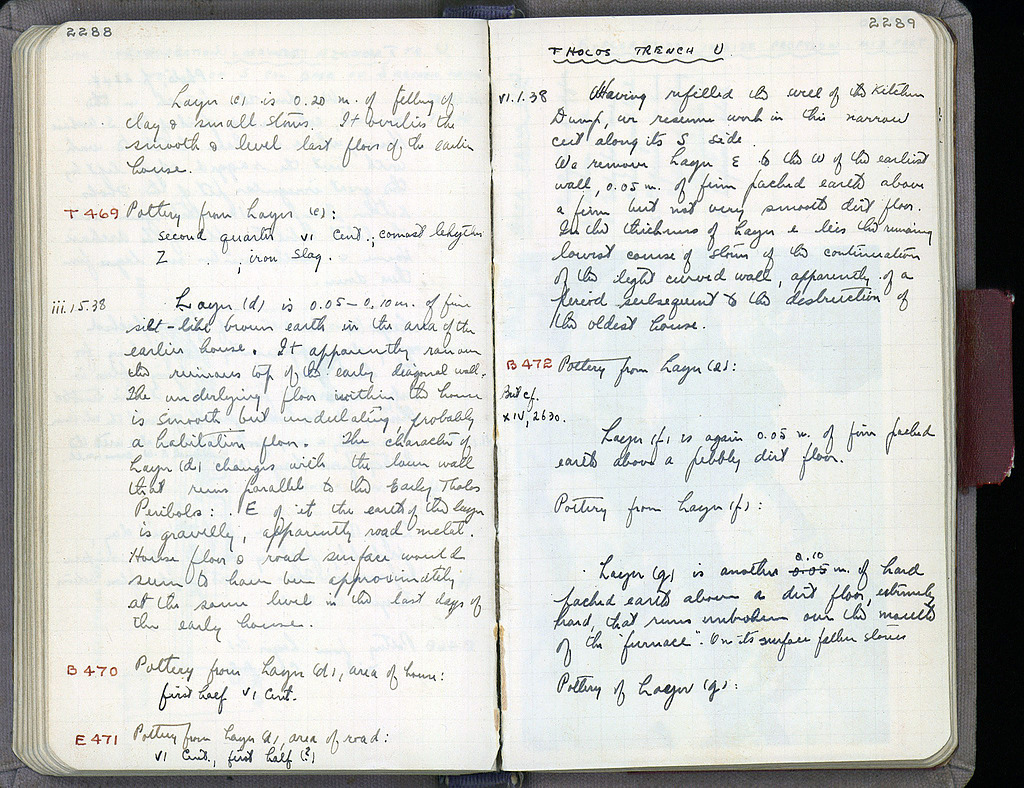 2288
Layer (c) is 0.20 m. of filling of
clay & small stones. It overlies the
smooth & level last floor of the earlier
house.
T 469 Pottery from Layer (c):
second quarter VI cent.; comast lekythos
Z , iron slag.
iii.15.38 Layer (d) is 0.05-0.10 m. of fine
silt-like brown earth in the area of the
earlier house. It apparently ran over
the ruinous top of the early diagonal wall.
The underlying floor within the house
is smooth but undulating, probably
a habitation floor. The character of
Layer (d) changes with the lower wall
that runs parallel to the Early Tholos
Peribolos: E of it the earth of the layer
is gravelly, apparently road metal.
House floor & road surface would
seem to have been approximately
at the same level in the last days of
the early house.
B 470 Pottery from Layer (d), area of house:
first half VI Cent.
E 471 Pottery from Layer (d), area of road:
VI Cent., first half (?)
2289
THOLOS TRENCH U
VI.1.38 Having refilled the area of the Kitchen
Dump, we resume work in this narrow
cut along its S side.
We remove Layer E to the W of the earliest
wall, 0.05 m. of firm packed earth above
a firm but not very smooth dirt floor.
In the thickness of Layer e lies the remaining
lowest course of stones of the continuation
of the light curved wall, apparently of a
period subsequent to the destruction of
the oldest house.
B 472 Pottery from Layer (e):
But cf.
XIV, 2630.
Layer (f) is again 0.05 m. of firm packed
earth above a pebbly dirt floor.
Pottery from Layer (f):
0.10
Layer (g) is another 0.05 m. of hard
packed earth above a dirt floor, extremely
hard, that runs unbroken over the mouth
of the "furnace". On its surface fallen stones
Pottery of Layer (g):